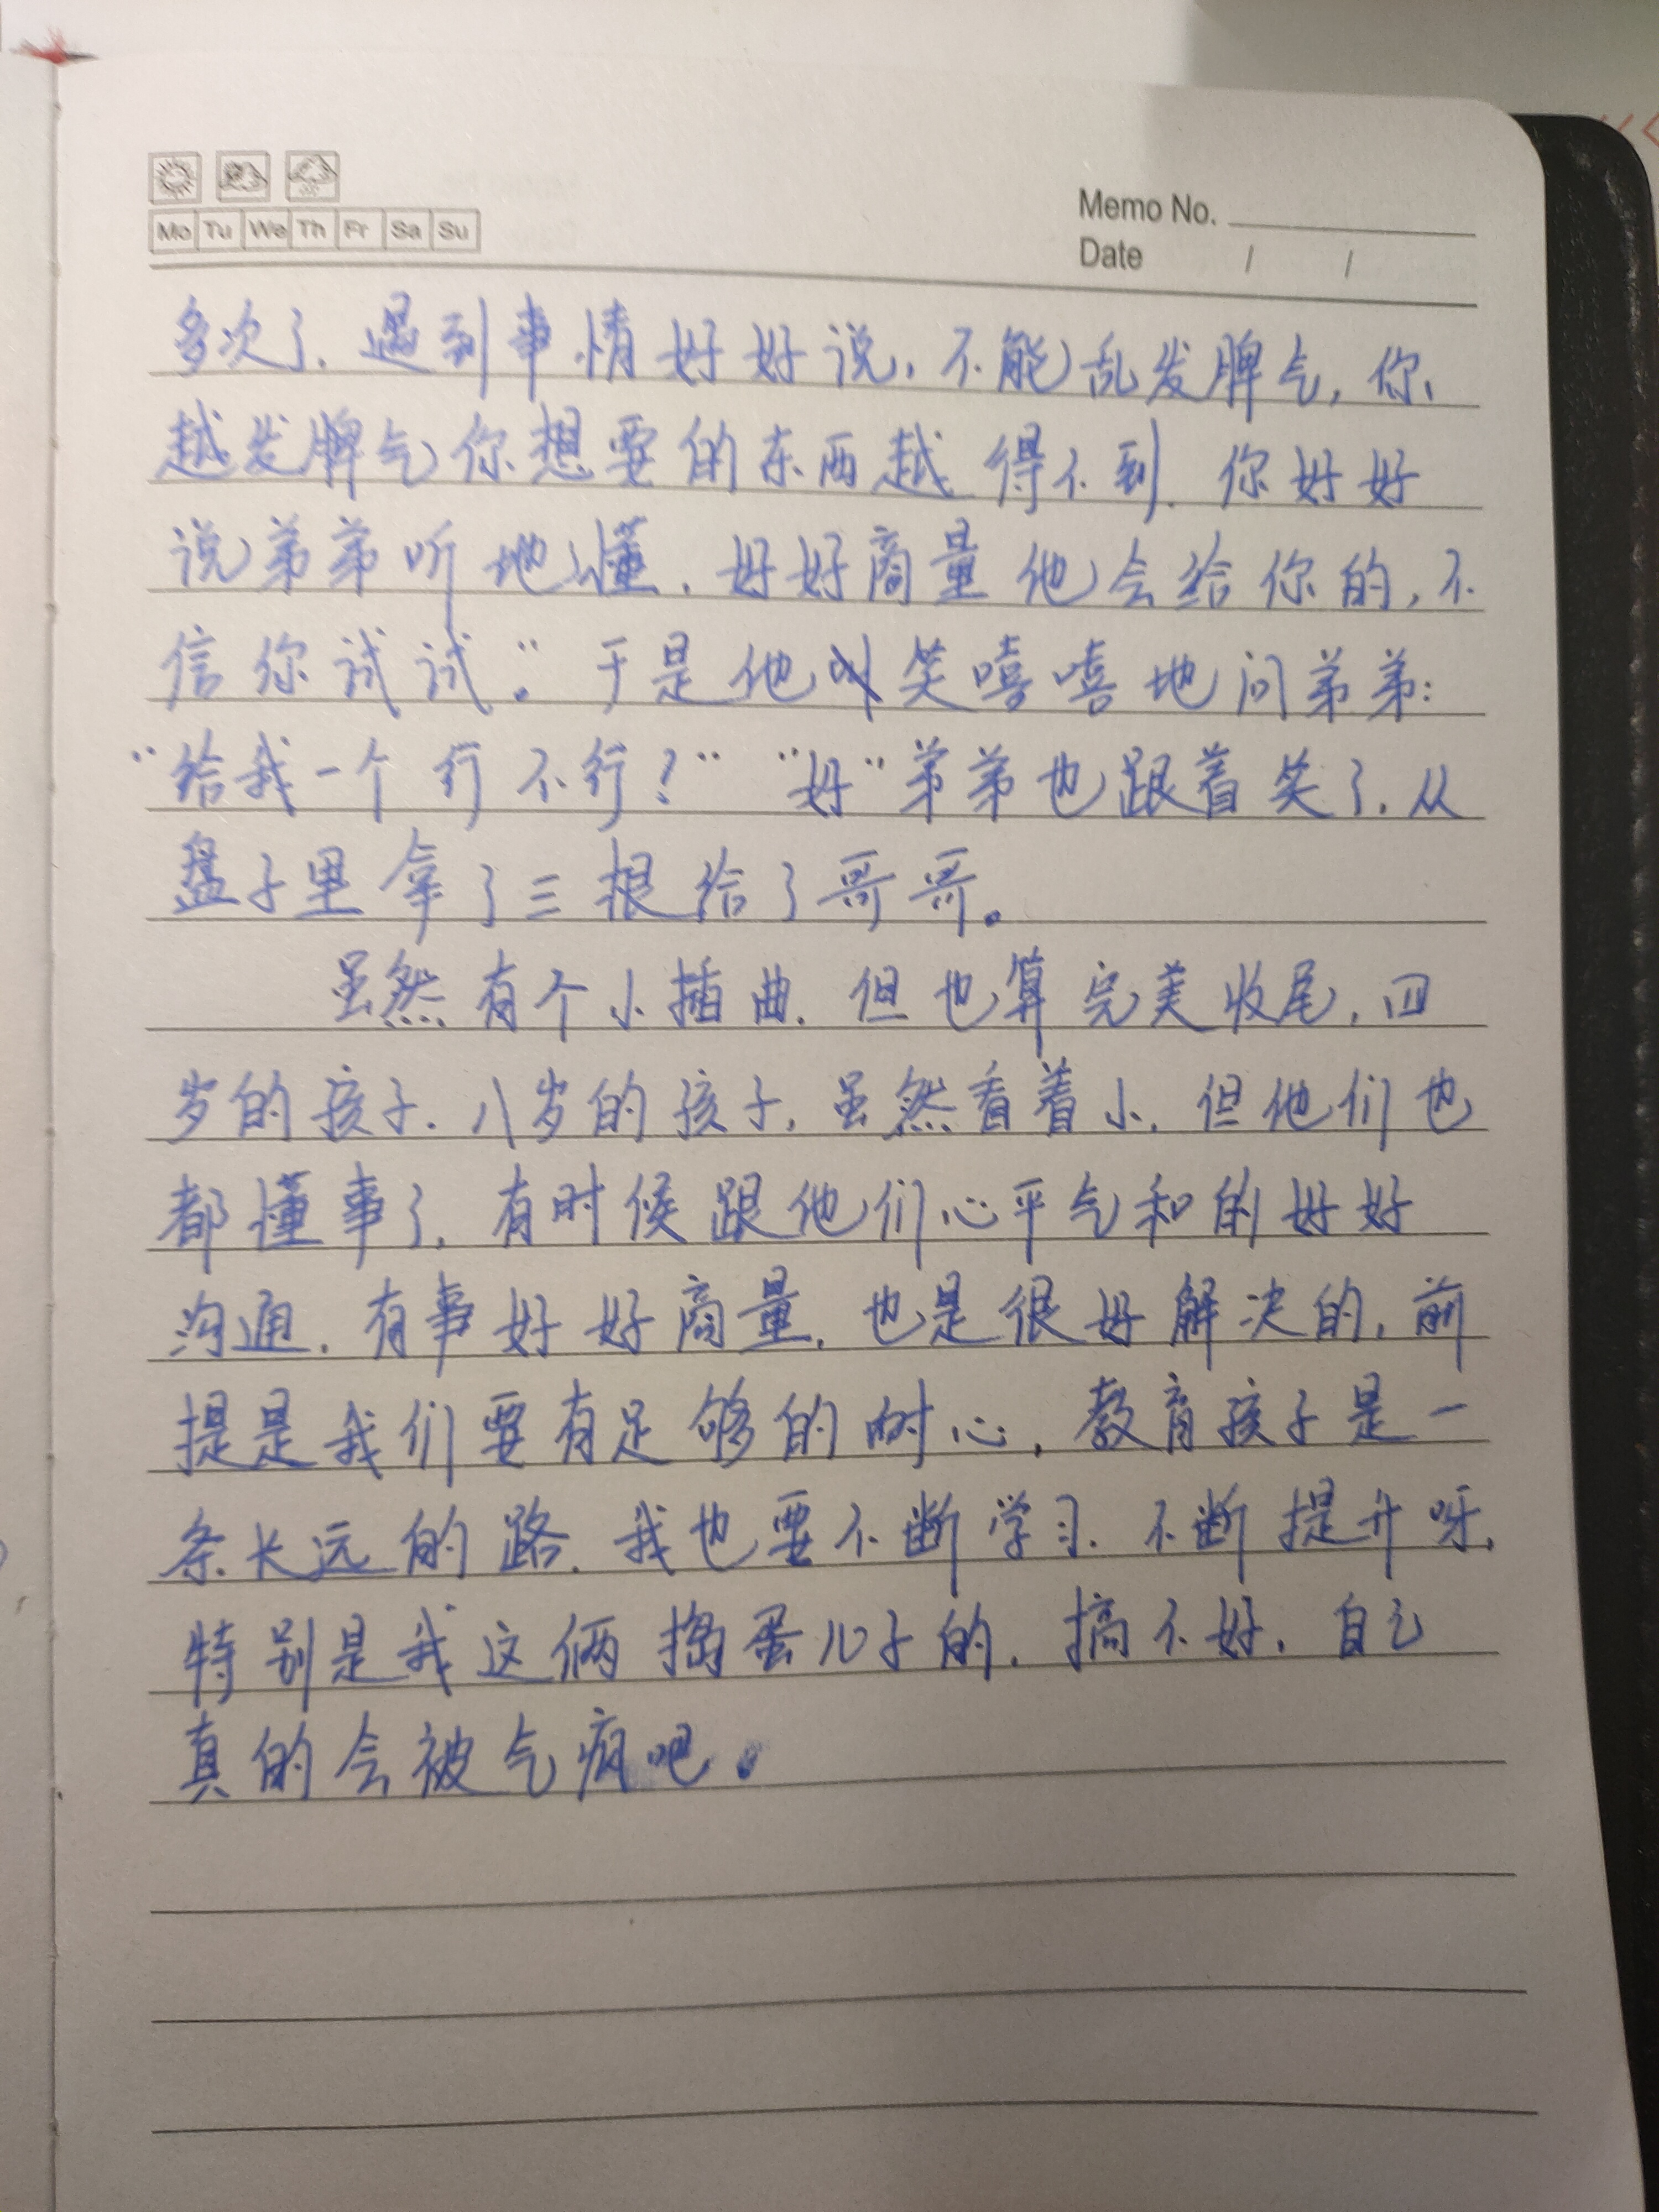 Mo Tu We Th Fr Sa Su
Memo No.
Date / /
多次了，遇到事情好好说，不能乱发脾气，你
越发脾气你想要的东西越得不到，你好好
说弟弟听地懂，好好商量他会给你的，不
信你试试。”于是他笑嘻嘻地问弟弟：
“给我一个行不行？”“好”弟弟也跟着笑了，从
盘子里拿了三根给了哥哥。
虽然有个小插曲，但也算完美收尾，四
岁的孩子，八岁的孩子，虽然看着小，但他们也
都懂事了，有时候跟他们心平气和的好好
沟通，有事好好商量，也是很好解决的，前
提是我们要有足够的耐心，教育孩子是一
条长远的路，我也要不断学习，不断提升呀，
特别是我这俩捣蛋儿子的，搞不好，自己
真的会被气疯吧。